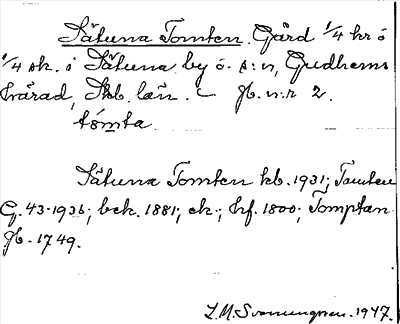 Sätuna Tomten. Gård 1/4 kr o
1/4 sk. i Sätuna by o. s:n, Gudhems
härad, Skb. län. - Jb. n:r 2.
tómta
Sätuna Tomten kb. 1931; Tomten
G. 43-1936; bek. 1881; ek.; hf. 1800; Tomptan
Jb. 1749.
1947.